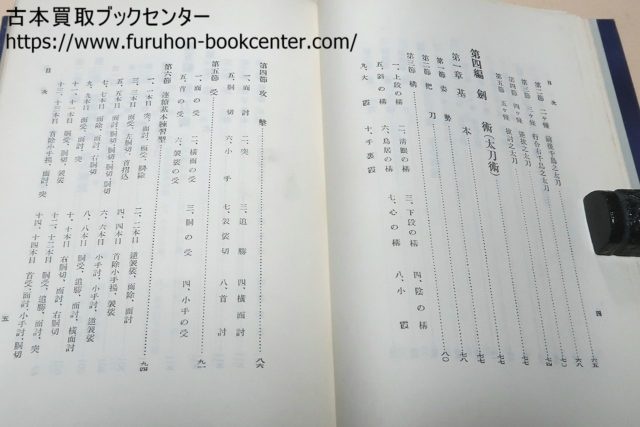 古本買取ブックセンター
https://www.furuhon-bookcenter.com/
目次
四
第二節 二ヶ條 前後千鳥之太刀 六五
第三節 三ヶ條 行合右千鳥之太刀 六八
第四節 四ヶ條 抜討之太刀 七〇
第五節 五ヶ條
第四編 劍術(太刀術)
第一章 基本 七七
第一節 姿勢 七七
第二節 把刀 七八
第三節 構 八〇
一、上段の構 二、清眼の構 三、下段の構 四、陰の構
五、斜の構 六、鳥居の構 七、心の構 八、小霞
九、大霞 十、千裏霞
第四節 攻擊 八六
一、面討 二、突 三、追勝 四、橫面討
五、胴切 六、小手 七、袈裟切 八、首討
第五節 受 九一
一、面の受 二、橫面の受 三、胴の受 四、小手の受
五、首の受 六、袈裟の受
第六節 連續基本練習型 九四
一、一本目 面討、胴受、胴除 二、二本目 逆袈裟、面除、面討
三、三本目 面受、左胴切、首摺込 四、四本目 首除小手揚、袈裟
五、五本目 面討、胴討、胴切 六、六本目 小手討、逆袈裟
七、七本目 面除、面討、右胴切 八、八本目 胴受、追勝、面討、突
九、九本目
十、十本目 胴受、面討、橫面討
十二、十二本目 右胴切、面討、右胴切
十三、十三本目 首除小手揚、面討、突
十四、十四本目 首受、面討、胴切
目次
五